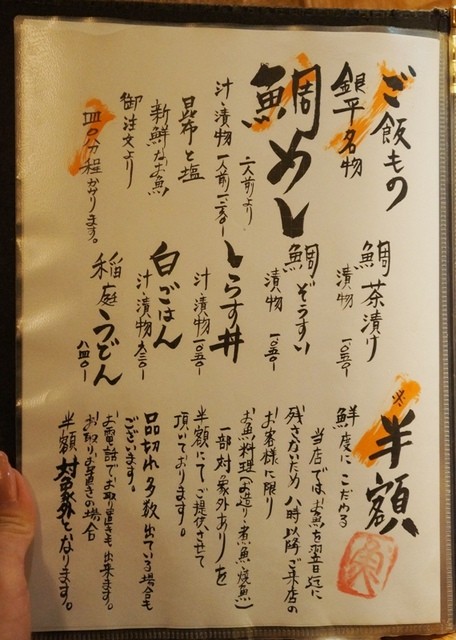 ご飯もの
銀平名物
鯛めし
二人前より
汁・漬物 一人前一、二五〇-
昆布と塩
新鮮なお魚
御注文より
四〇分程かかります。
鯛茶漬け
漬物 一〇五〇-
鯛ぞうすい
漬物 一〇五〇-
しらす丼
汁・漬物 一〇五〇-
白ごはん
汁・漬物
稲庭うどん
八四〇-
半額
鮮度にこだわる
当店ではお魚を翌日迄に
残さないため八時以降ご来店の
お客様に限り
お魚料理(お造り・煮魚・焼魚)
一部対象外ありを
半額にてご提供させて
頂いております。
品切れ多数出ている場合も
ございます。
お電話でお取り置きも出来ます。
お取り置きの場合
半額対象外となります。